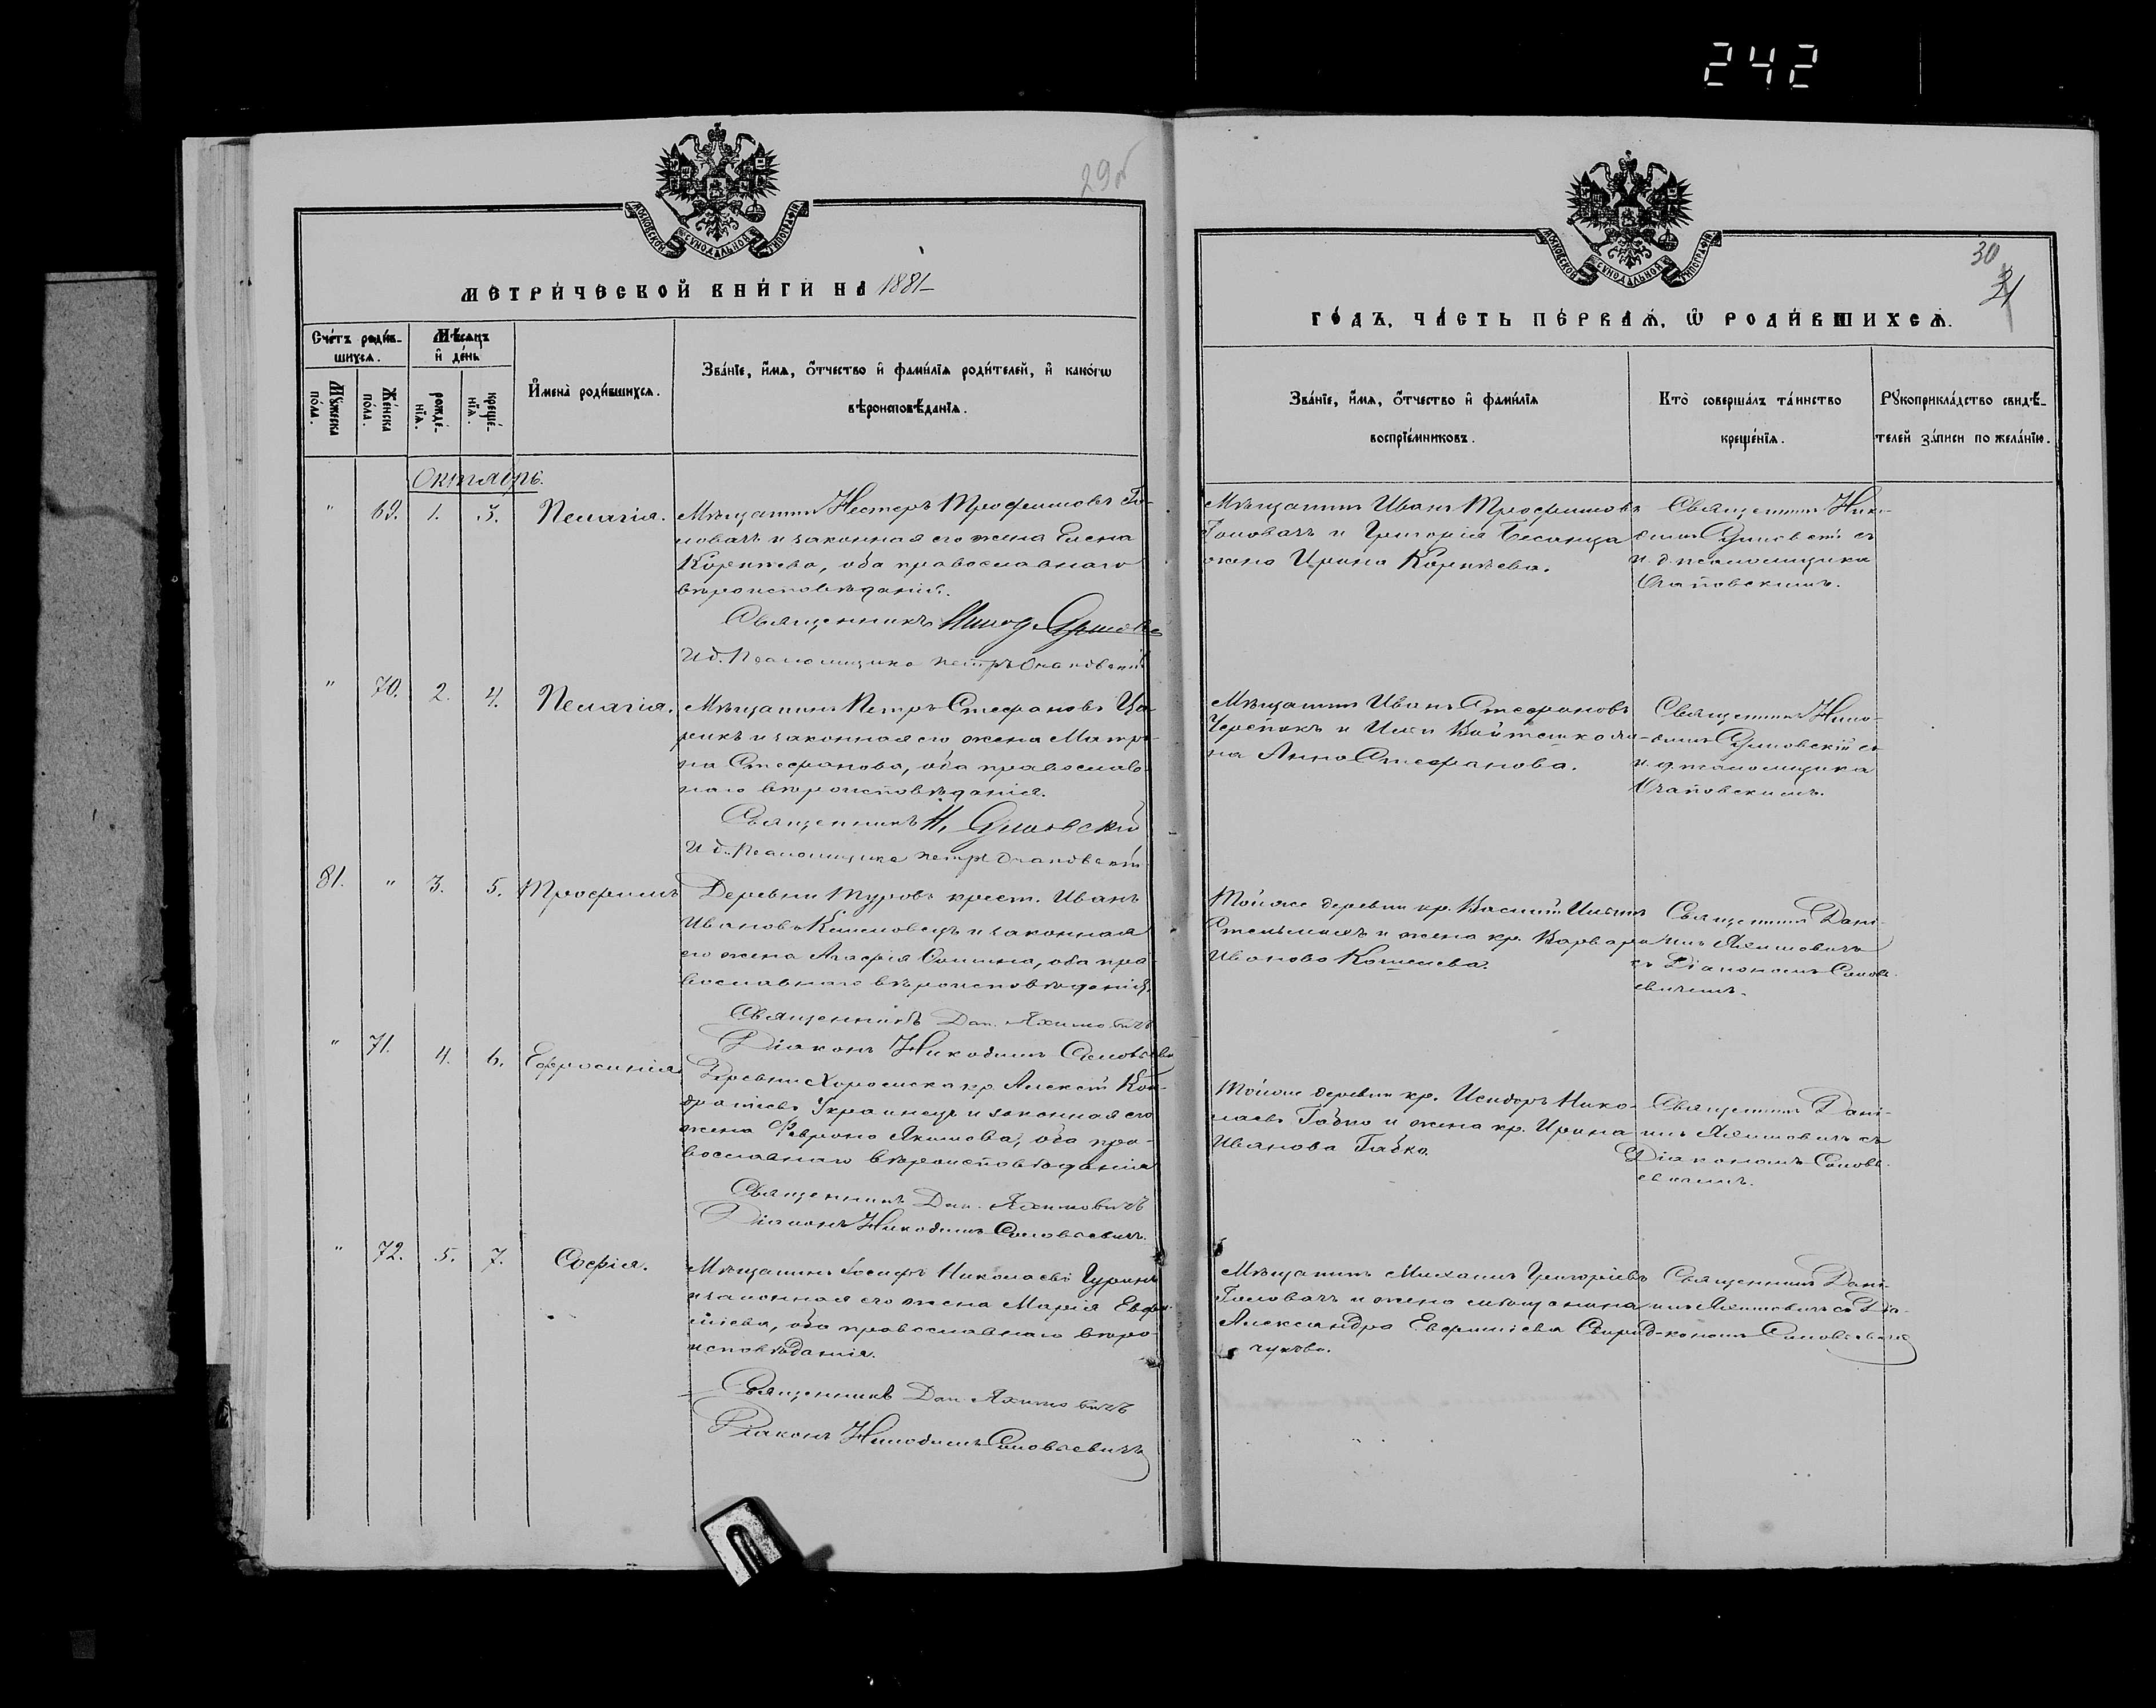 242
29об
МОСКОВСКОЙ СѴНОДАЛЬНОЙ ТИПОГРАФІИ
МЕТРИЧЕСКОЙ КНИГИ НА 1881
Счетъ родив-
шихся.
Мѣсяцъ
и день
Мужеска пола.
Женска пола.
рожде-
нія.
креще-
нія.
Имена родившихся.
Званіе, имя, отчество и фамилія родителей, и какогѡ
вѣроисповѣданія.
Октябрь.
" 69. 1. 3. Пелагія. Мѣщанинъ Несторъ Трофимовъ Го-
ловачъ и законная его жена Елена
, оба православнаго
вѣроисповѣданія.
Священникъ
И д. Псаломщика Петръ
" 70. 2. 4. Пелагія. Мѣщанинъ Петръ Стефановъ
и законная его жена Матро-
на Стефанова, оба православ-
наго вѣроисповѣданія.
Священникъ Н.
И д. Псаломщика Петръ
81. " 3. 5. Трофимъ Деревни Туровъ крест. Иванъ
Ивановъ и законная
его жена Агафія, оба пра-
вославнаго вѣроисповѣданія.
Священникъ Дан. Яхимовичъ
Діаконъ Никодимъ Соловьеви
" 71. 4. 6. Ефросинія Деревни Хоромска кр. Алексѣй Кон-
дратіевъ Украинецъ и законная его
жена Феврона Якимова, оба пра-
вославнаго вѣроисповѣданія
Священникъ Дан. Яхимовичъ
Діаконъ Никодимъ Соловьевичъ.
" 72. 5. 7. Софія. Мѣщанинъ Іосифъ Николаевъ Гуринъ
и законная его жена Марія Евфи-
міева, оба православнаго вѣро-
исповѣданія.
Священникъ Дан. Яхимовичъ
Діаконъ Никодимъ Соловьевичъ
МОСКОВСКОЙ СѴНОДАЛЬНОЙ ТИПОГРАФІИ
30
31
ГОДЪ, ЧАСТЬ ПЕРВАЯ, Ѡ РОДИВШИХСЯ.
Званіе, имя, отчество и фамилія
воспріемниковъ.
Кто совершалъ таинство
крещенія.
Рукоприкладство свидѣ-
телей записи по желанію.
Мѣщанинъ Иванъ Трофимовъ
Головачъ и Григорія
жена Ирина
Священникъ Нико-
димъ съ
и. д. псаломщика
Мѣщанинъ Иванъ Стефановъ
и
на Анна Стефанова.
Священникъ Нико-
димъ съ
и. д. псаломщика
Тойже деревни кр. Василій Ильинъ
и жена кр. Варвара
Иванова
Священникъ Дані-
илъ Яхимовичъ
съ Діакономъ Соловь-
евичемъ.
Тойже деревни кр. Исидоръ Нико-
лаевъ Габко и жена кр. Ирина
Иванова Габко.
Священникъ Дані-
илъ Яхимовичъ съ
Діакономъ Соловь-
евичемъ.
Мѣщанинъ Михаилъ Григоріевъ
Головачъ и жена мѣщанина
Александра Евфиміева Свирид-
чукова.
Священникъ Дані-
илъ Яхимовичъ съ Діа-
кономъ Соловьевичемъ